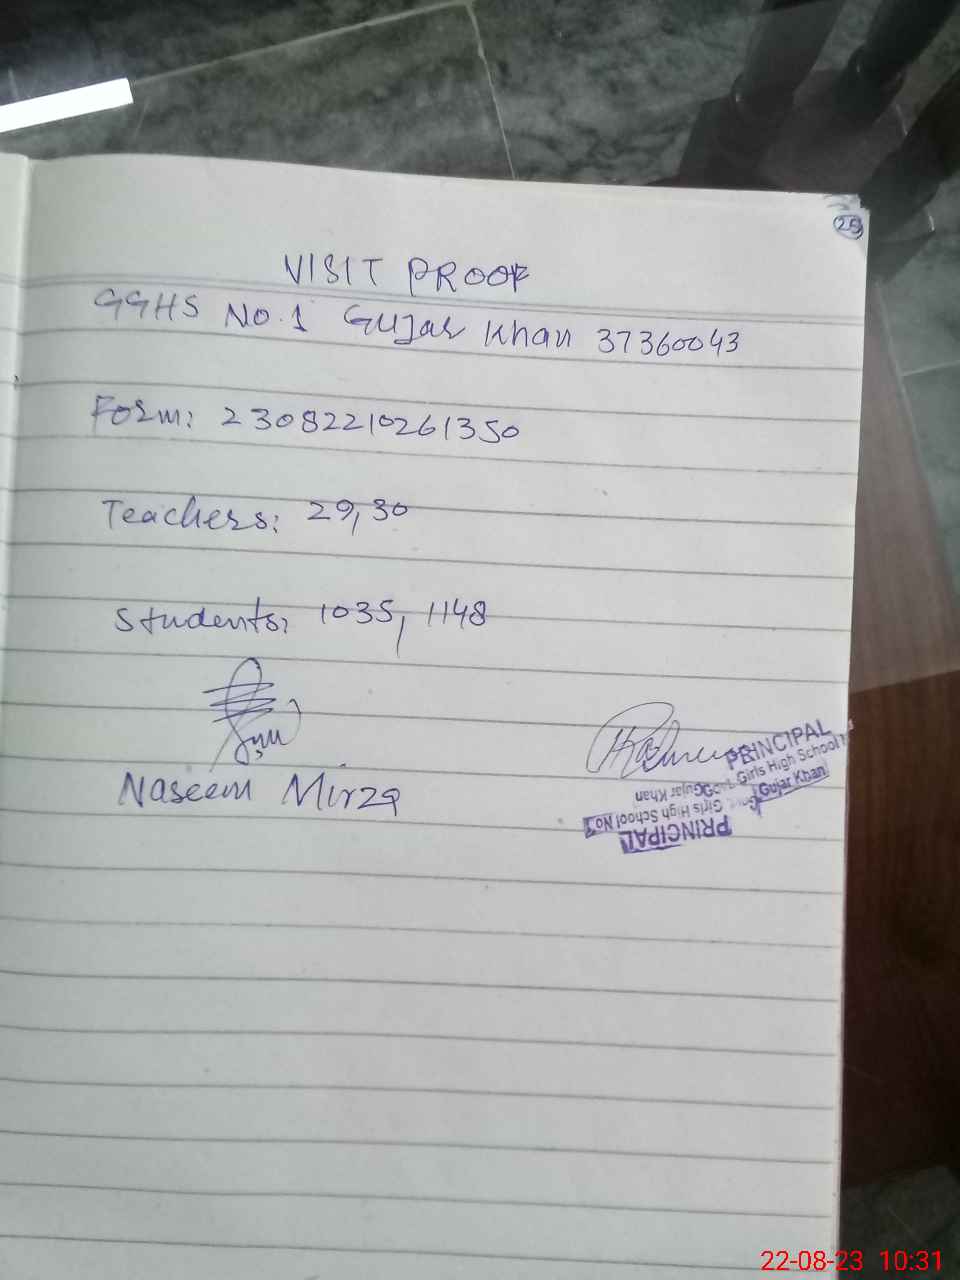 25
VISIT PROOF
GGHS No.1 Gujar Khan 37360043
Form: 23082210261350
Teachers: 29,30
Students: 1035, 1148
Naseem Mirza
PRINCIPAL
Girls High School
Gujar Khan
PRINCIPAL
Girls High School No.
Gujar Khan
22-08-23 10:31